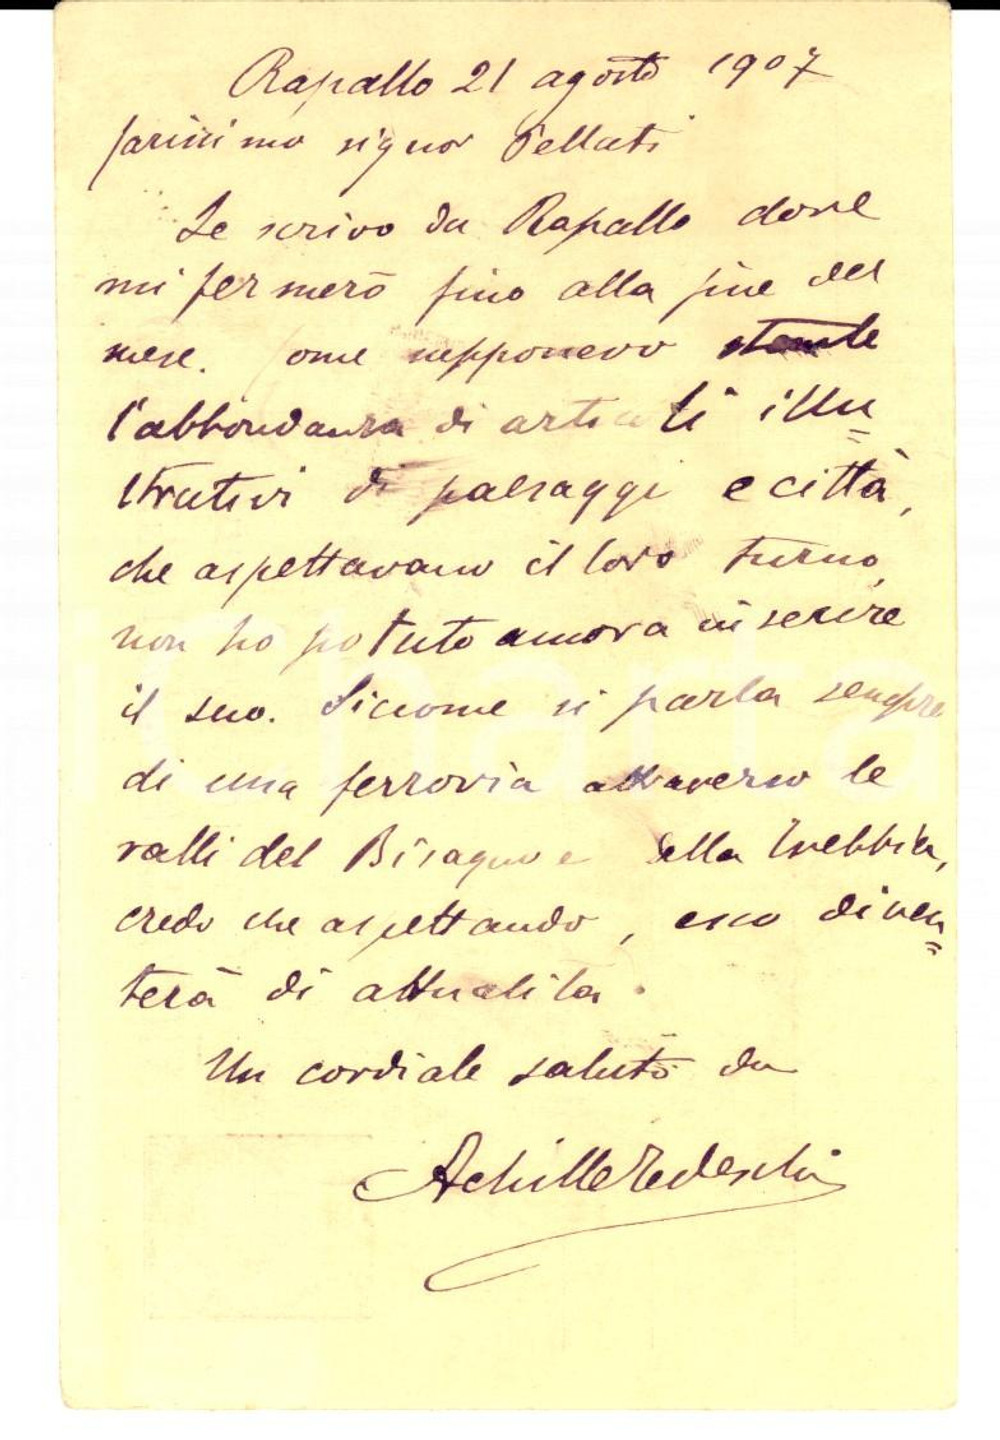 Rapallo 21 agosto 1907
Carissimo signor Pellati
Le scrivo da Rapallo dove
mi fermerò fino alla fine del
mese. Come supponevo stante
l'abbondanza di articoli illu=
strativi di paesaggi e città,
che aspettavano il loro turno,
non ho potuto ancora inserire
il suo. Siccome si parla sempre
di una ferrovia attraverso le
valli del Bisagno e della Trebbia,
credo che aspettando, esso diven=
terà di attualità.
Un cordiale saluto da
Achille Tedeschi